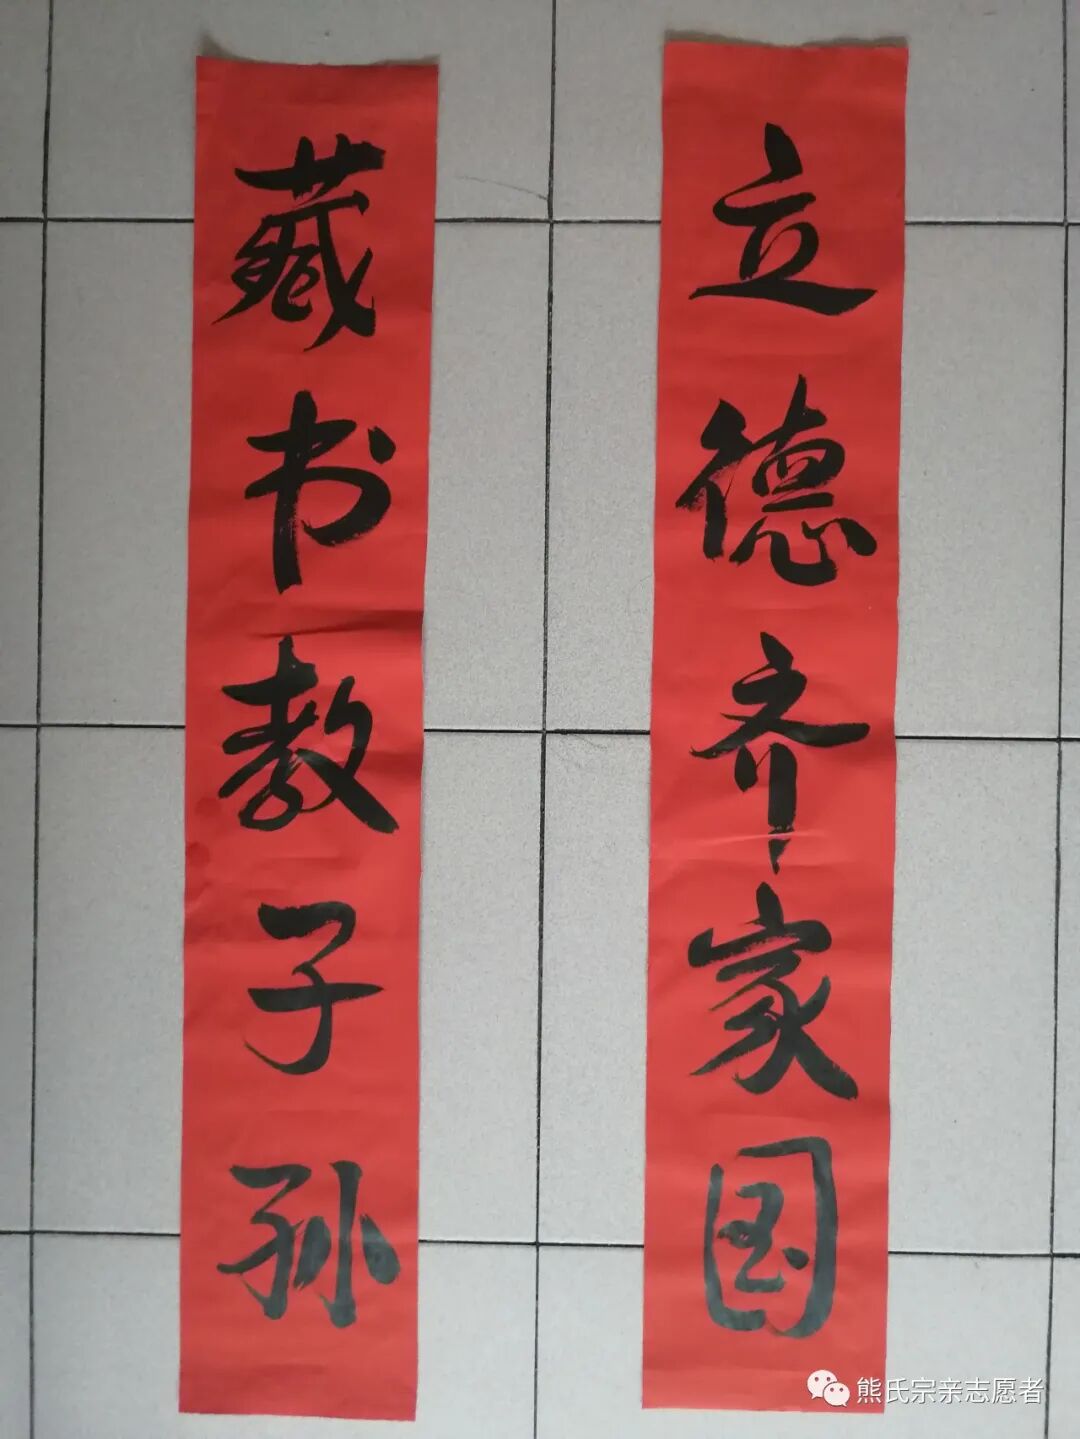 立德齐家国
藏书教子孙
熊氏宗亲志愿者